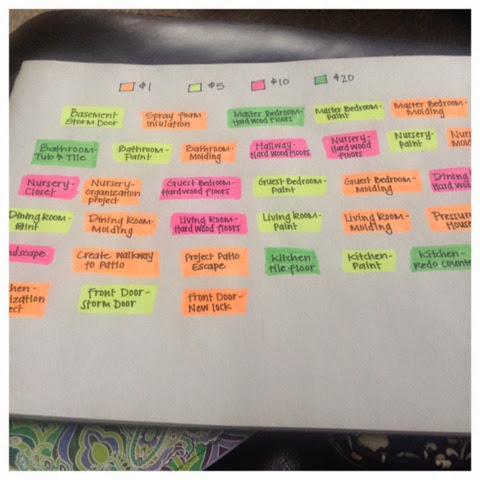 $1 $5 $10 $20
Basement- Spray foam Master Bedroom- Master Bedroom- Master Bedroom-
Storm Door insulation Hard wood floors Paint Molding
Bathroom- Bathroom- Bathroom- Hallway- Nursery- Nursery- Nurse
Tub + Tile Paint Molding Hard wood floors Hard wood floors Paint Mold
Nursery- Nursery- Guest Bedroom- Guest Bedroom- Guest Bedroom- Dining
Closet organization Hard wood Floors Paint Molding Hard wood
project
Dining Room- Dining Room- Living Room- Living Room- Living Room- Pressure
Paint Molding Hard wood floors Paint Molding House
ndscape Create Walkway Project Patio Kitchen- Kitchen- Kitchen-
to Patio Escape tile floor Paint Redo Counte
chen- Front Door- Front Door-
ization Storm Door New lock
ect